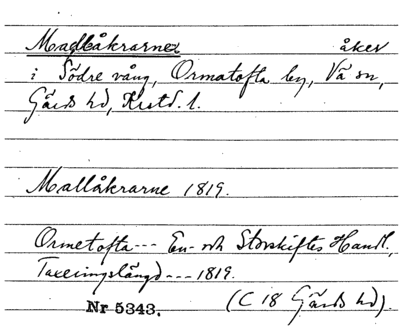 Mallåkrarne åker
i Södre vång, Ormatofta by, Vä sn,
Gärds hd, Krstds l.
Mallåkrarne 1819.
Ormetofta--- En- och Storskiftes Handl.,
Taxeringslängd --- 1819.
Nr 5343. (C 18 Gärds hd).